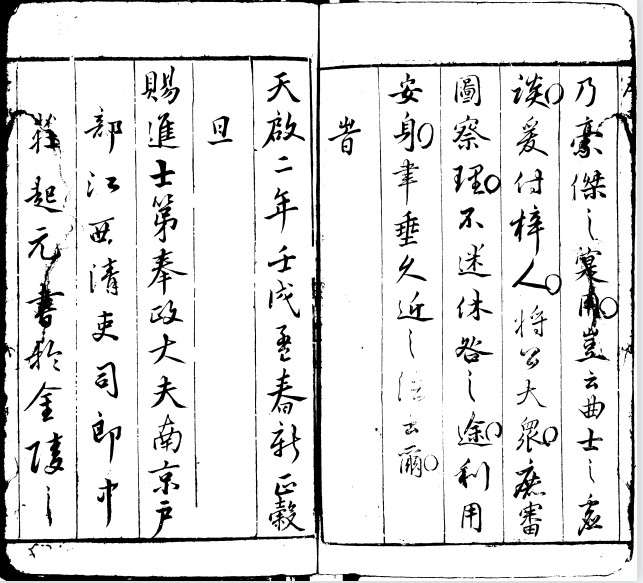 乃豪傑之寔用豈云曲士之虛
談爰付梓人將公大眾庶審
圖察理不迷休咎之途利用
安身聿垂久近之法云爾
旹
天啟二年壬戌孟春新正穀
旦
賜進士第奉政大夫南京戶
部江西清吏司郎中
莊起元書於金陵之